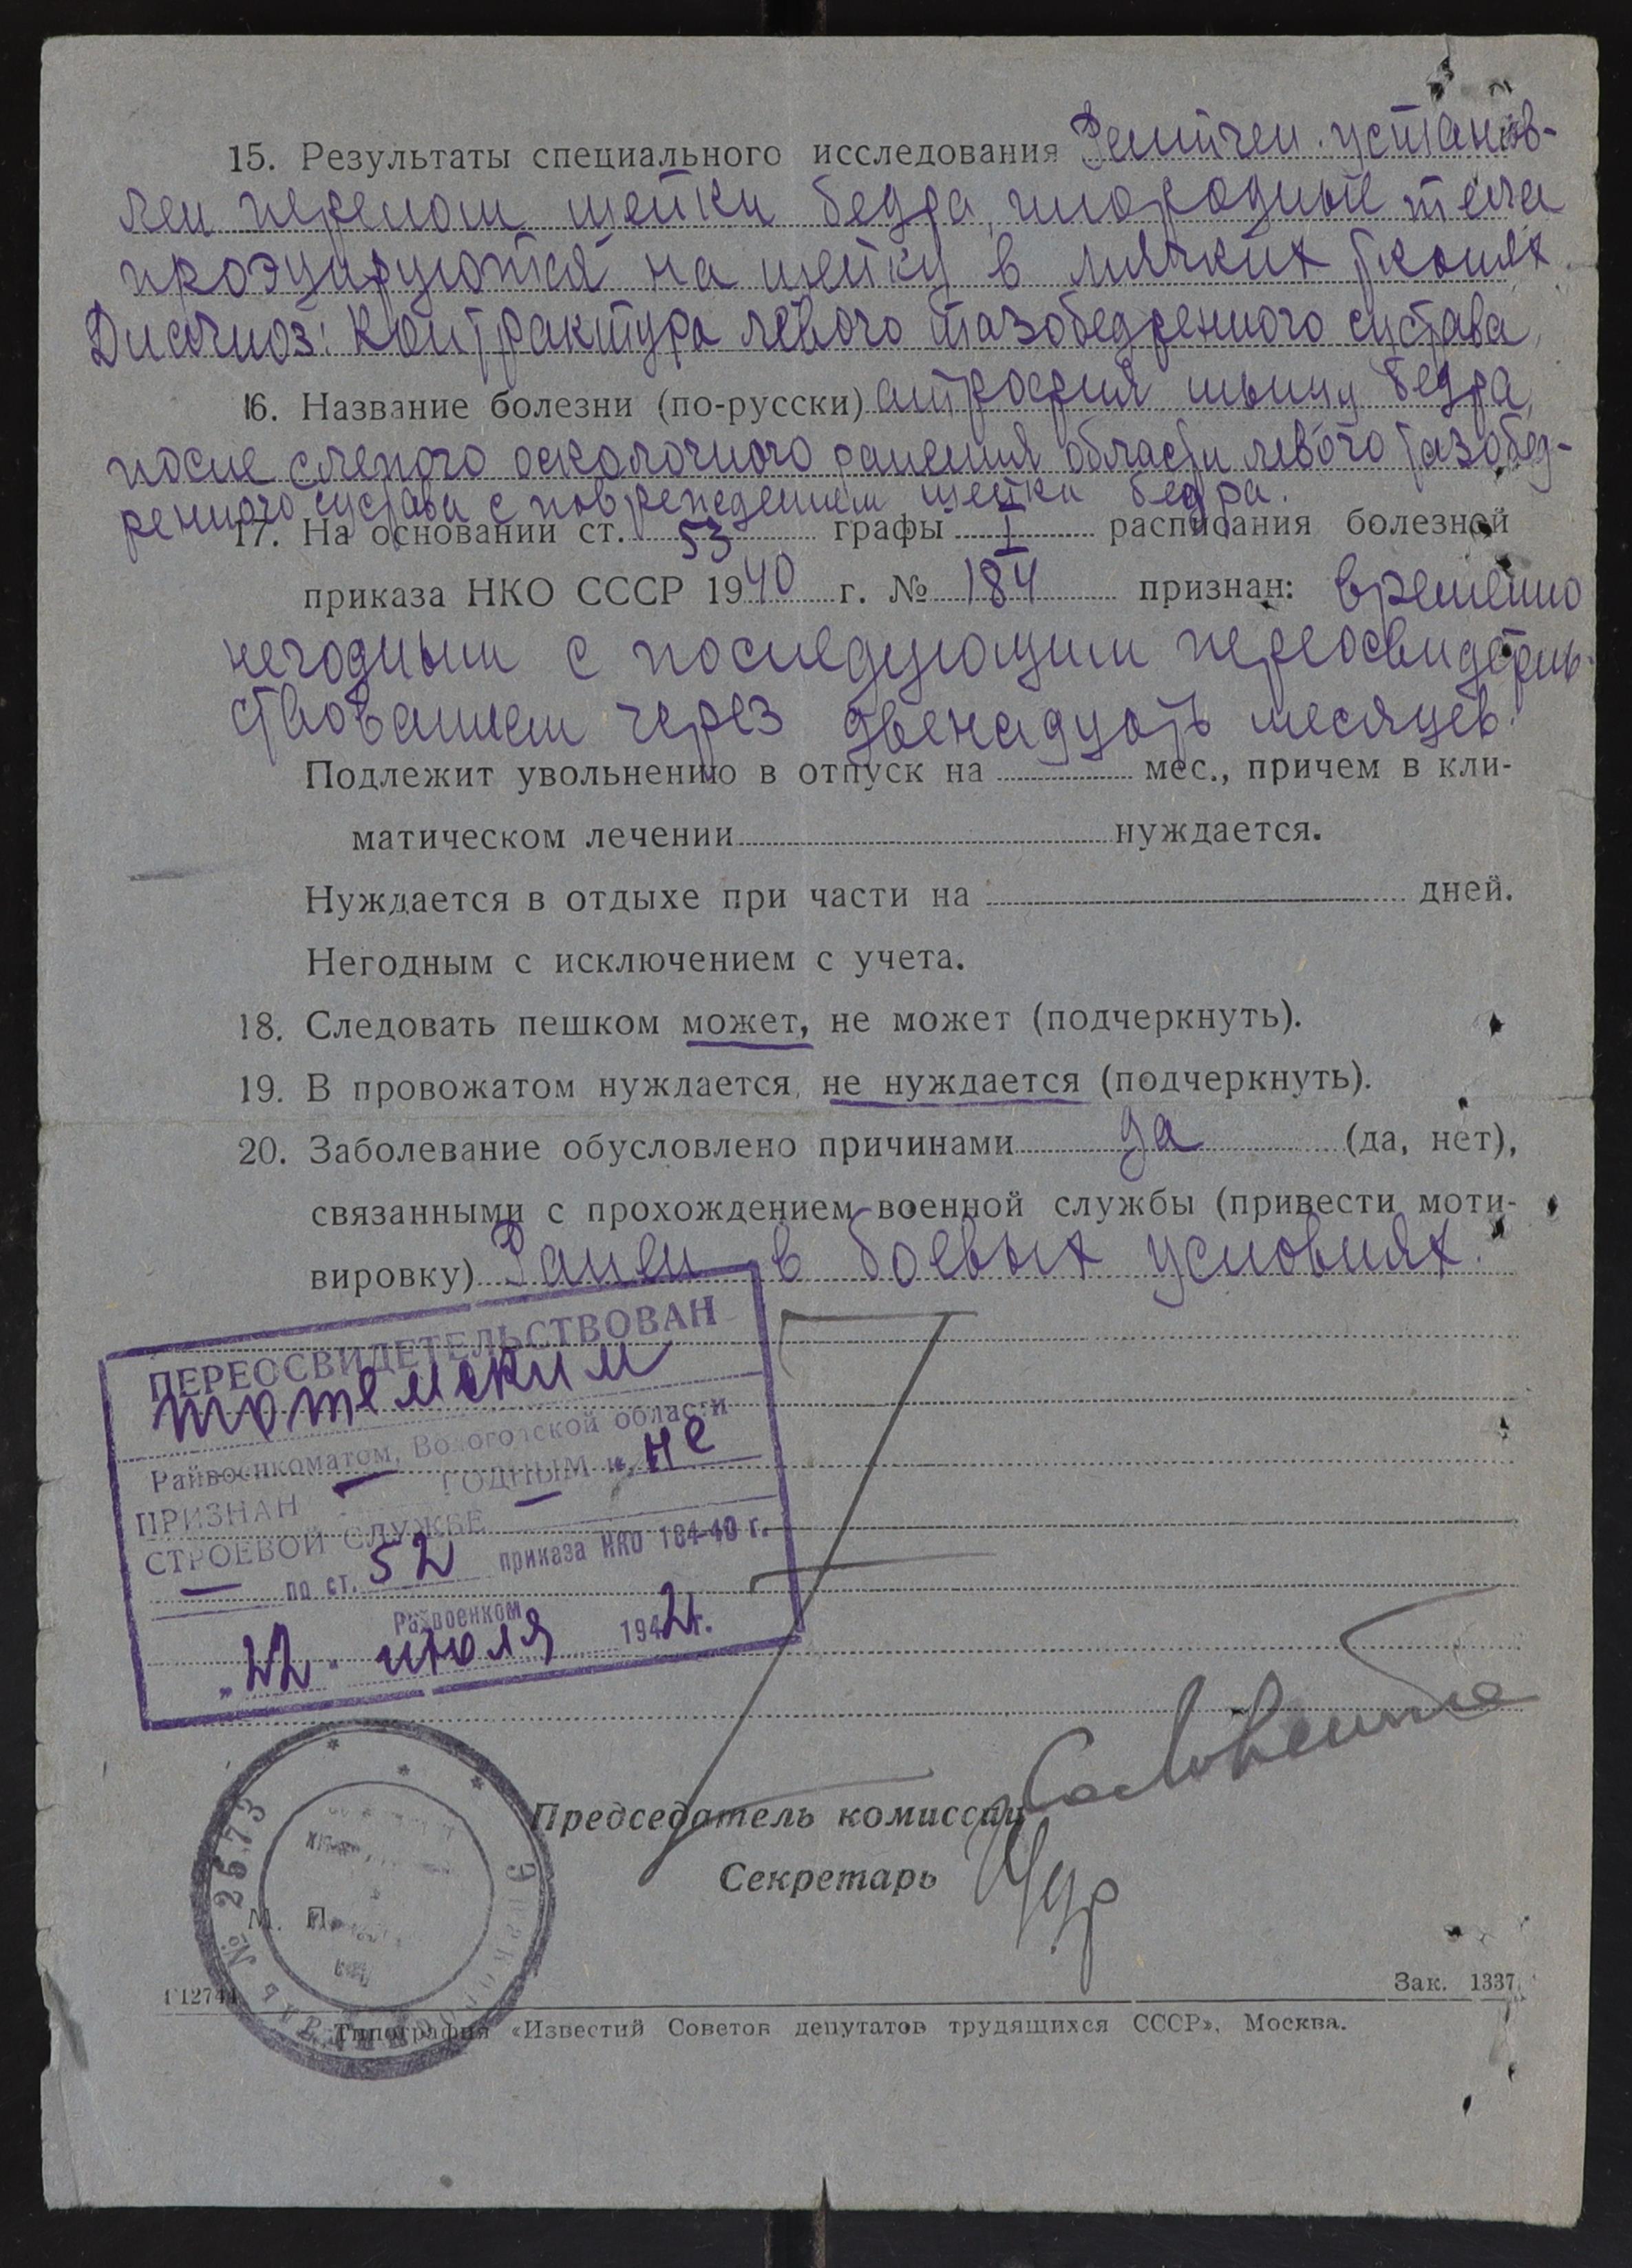 15. Результаты специального исследования Рентген. установ-
лен перелом шейки бедра, инородные тела
проэцируются на шейку в мягких тканях.
Диагноз: Контрактура левого тазобедренного сустава,
16. Название болезни (по-русски) атрофия мышц бедра,
после слепого осколочного ранения области левого тазобед-
ренного сустава с повреждением шейки бедра.
17. На основании ст. 53 графы I расписания болезней
приказа НКО СССР 1940 г. № 184 признан: временно
негодным с последующим переосвидетель-
ствованием через двенадцать месяцев.
Подлежит увольнению в отпуск на мес., причем в кли-
матическом лечении нуждается.
Нуждается в отдыхе при части на дней.
Негодным с исключением с учета.
18. Следовать пешком может, не может (подчеркнуть).
19. В провожатом нуждается, не нуждается (подчеркнуть).
20. Заболевание обусловлено причинами да (да, нет),
связанными с прохождением военной службы (привести моти-
вировку) Ранен в боевых условиях.
ПЕРЕОСВИДЕТЕЛЬСТВОВАН
тотемским
Райвоенкоматом, Вологодской области
ПРИЗНАН — ГОДНЫМ к не
СТРОЕВОЙ СЛУЖБЕ —
— по ст. 52 приказа НКО 184-40 г.
Райвоенком
„22" июля 1942 г.
Председатель комиссии
Секретарь
№ 2573
М. П.
Г12744 Зак. 1337.
Типография «Известий Советов депутатов трудящихся СССР», Москва.